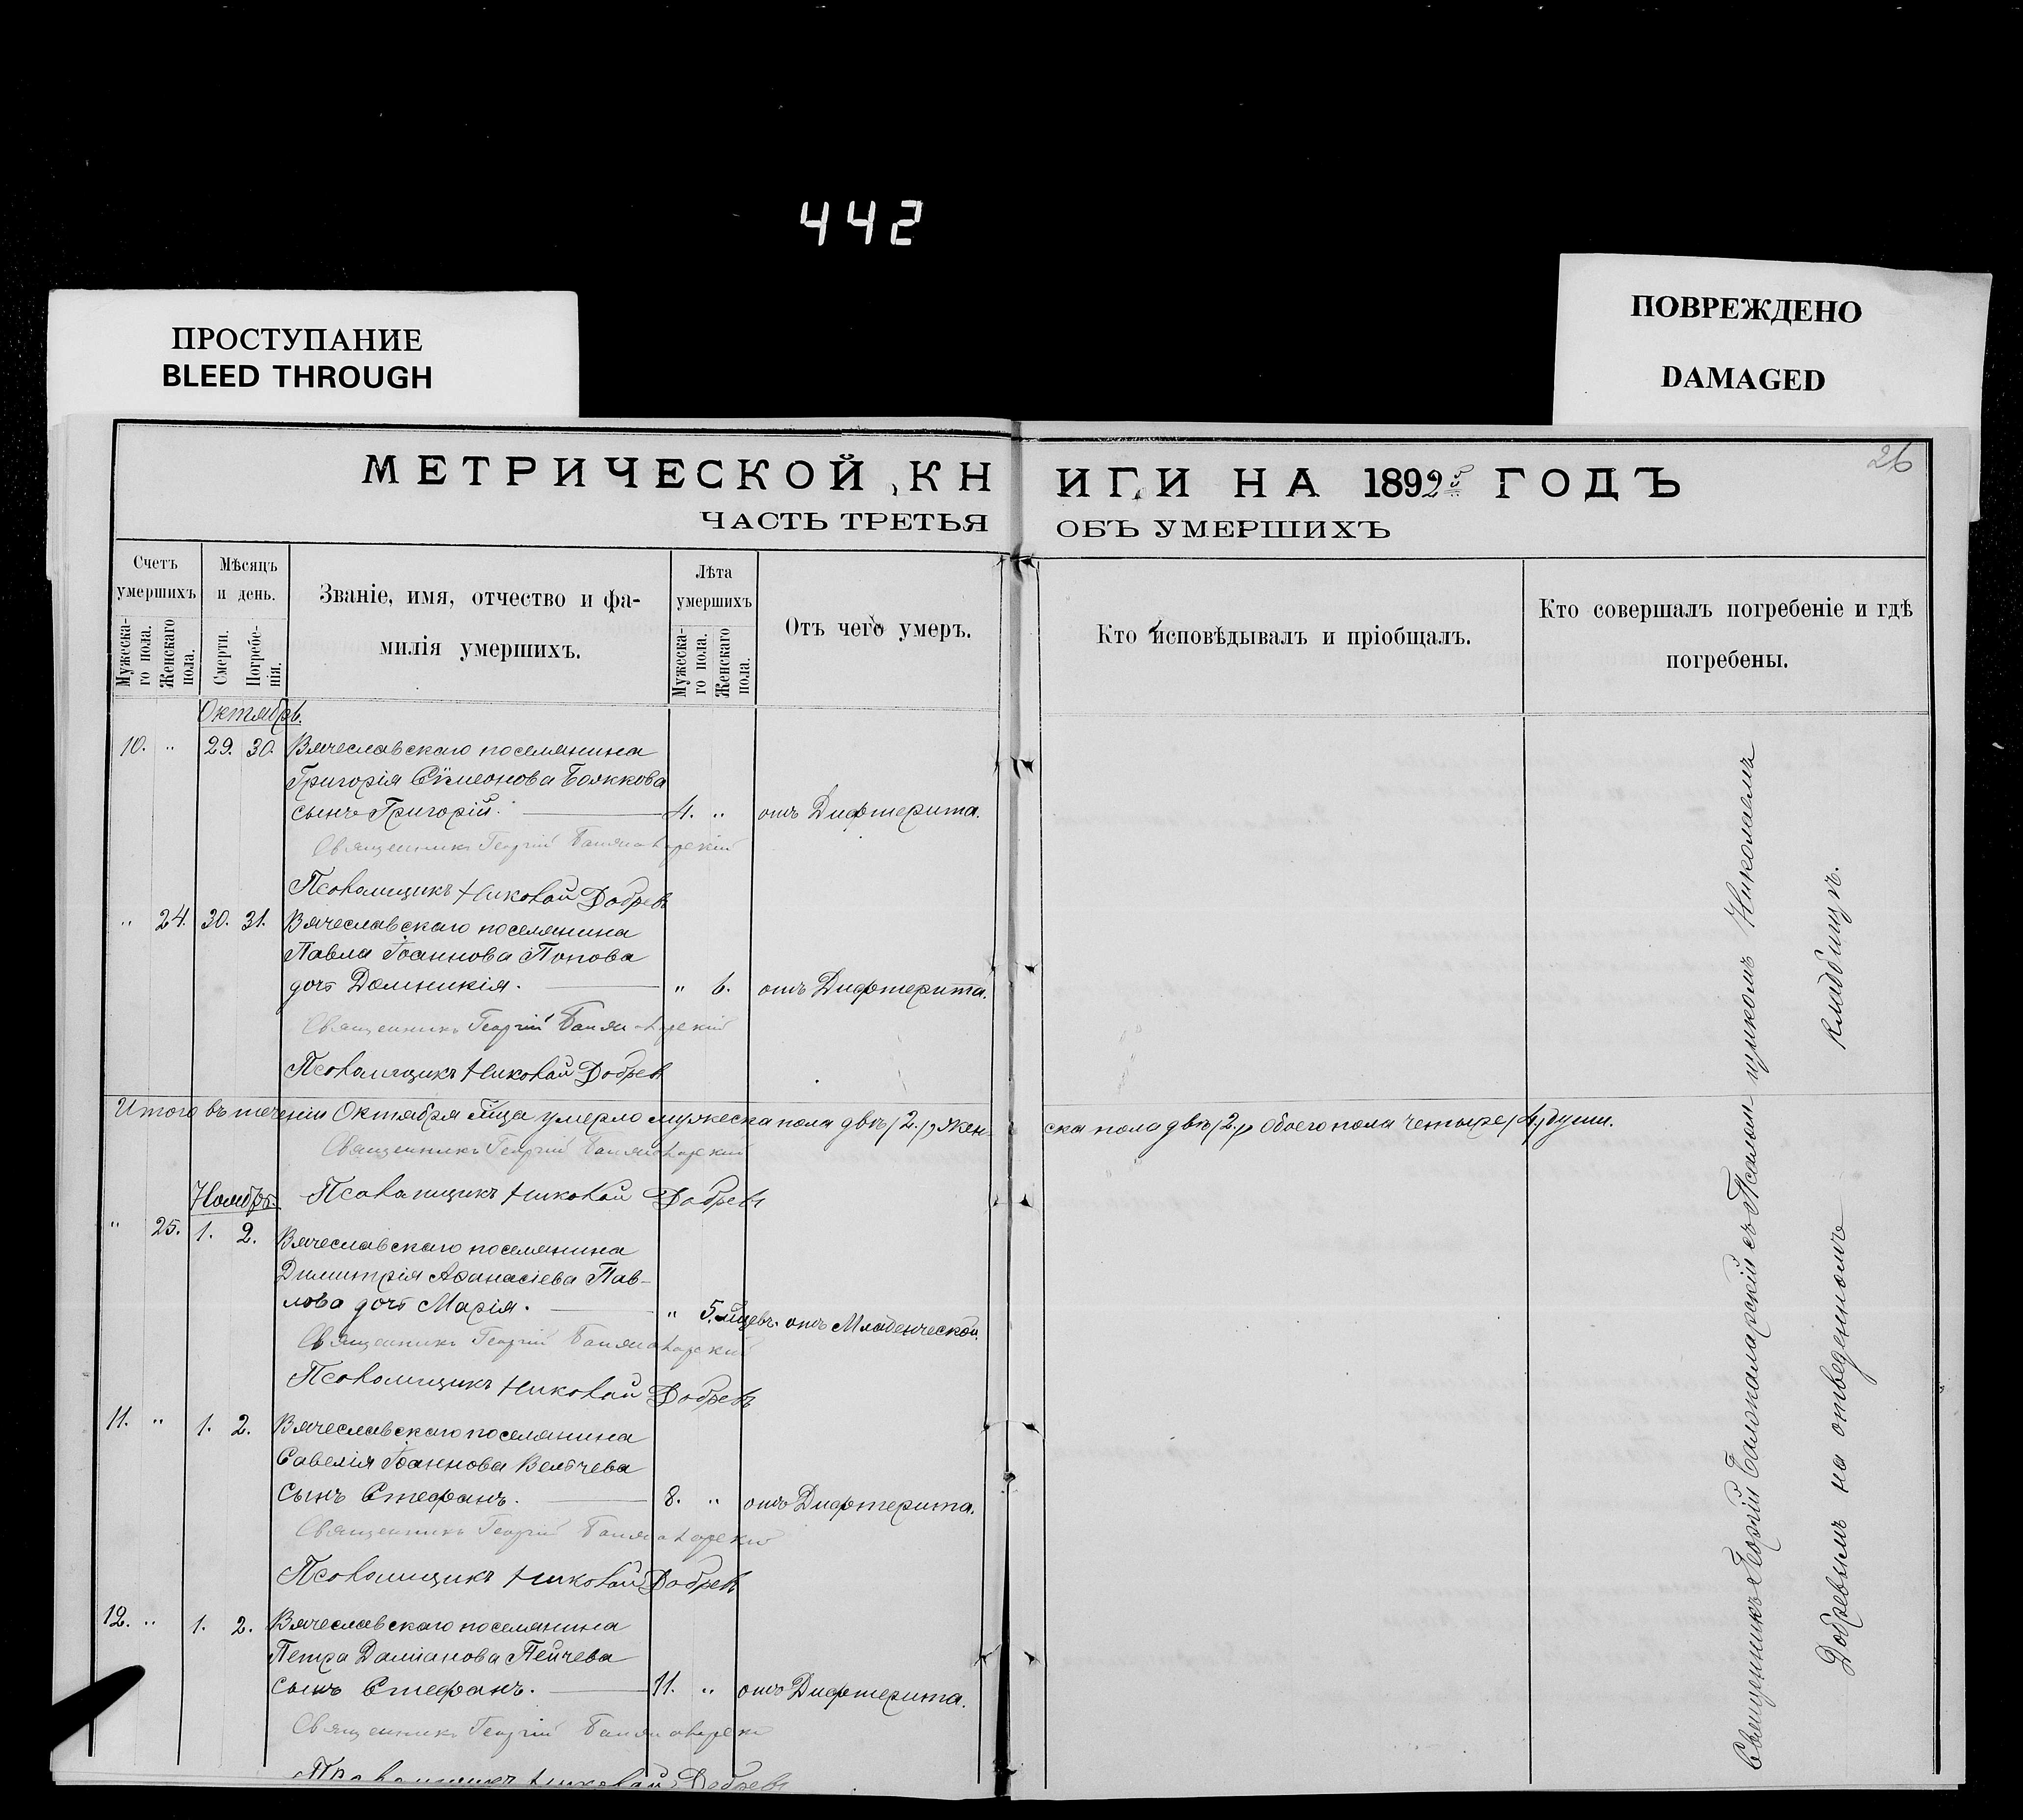 442
ПРОСТУПАНИЕ
BLEED THROUGH
ПОВРЕЖДЕНО
DAMAGED
26
МЕТРИЧЕСКОЙ КНИГИ НА 1892й ГОДЪ
ЧАСТЬ ТРЕТЬЯ ОБЪ УМЕРШИХЪ
Счетъ умершихъ
Мужеска-го пола.
Женскаго пола.
Мѣсяцъ и день.
Смерти.
Погребе-нія.
Званіе, имя, отчество и фа-
милія умершихъ.
Лѣта умершихъ
Мужеска-го пола.
Женскаго пола.
Отъ чего умеръ.
Кто исповѣдывалъ и пріобщалъ.
Кто совершалъ погребеніе и гдѣ
погребены.
Октябрь.
10. " 29. 30. Вячеславскаго поселянина
Григорія Сѵмеонова Бояккова
сынъ Григорій. 4. " отъ Дифтерита.
Священникъ Георгій
Псаломщикъ Николай Добревъ
" 24. 30. 31. Вячеславскаго поселянина
Павла Іоаннова Попова
дочь Домникія. " 6. отъ Дифтерита.
Священникъ Георгій
Псаломщикъ Николай Добревъ
Итого въ теченіи Октября м̃ца умерло мужеска пола двѣ (2.), жен-
ска пола двѣ (2.), обоего пола четыре (4.) души.
Священникъ Георгій
Псаломщикъ Николай Добревъ
Ноябрь.
" 25. 1. 2. Вячеславскаго поселянина
Димитрія Аѳанасіева Пав-
лова дочь Марія. " 5. м̃цевъ. отъ Младенческой.
Священникъ Георгій
Псаломщикъ Николай Добревъ
11. " 1. 2. Вячеславскаго поселянина
Савелія Іоаннова Велчева
сынъ Стефанъ. 8. " отъ Дифтерита.
Священникъ Георгій
Псаломщикъ Николай Добревъ
12. " 1. 2. Вячеславскаго поселянина
Петра Даміанова Пейчева
сынъ Стефанъ. 11. " отъ Дифтерита.
Священникъ Георгій
Псаломщикъ Николай Добревъ
Священникъ Георгій съ Псалом-щикомъ Николаемъ
Добревымъ на отведенномъ кладбищѣ.